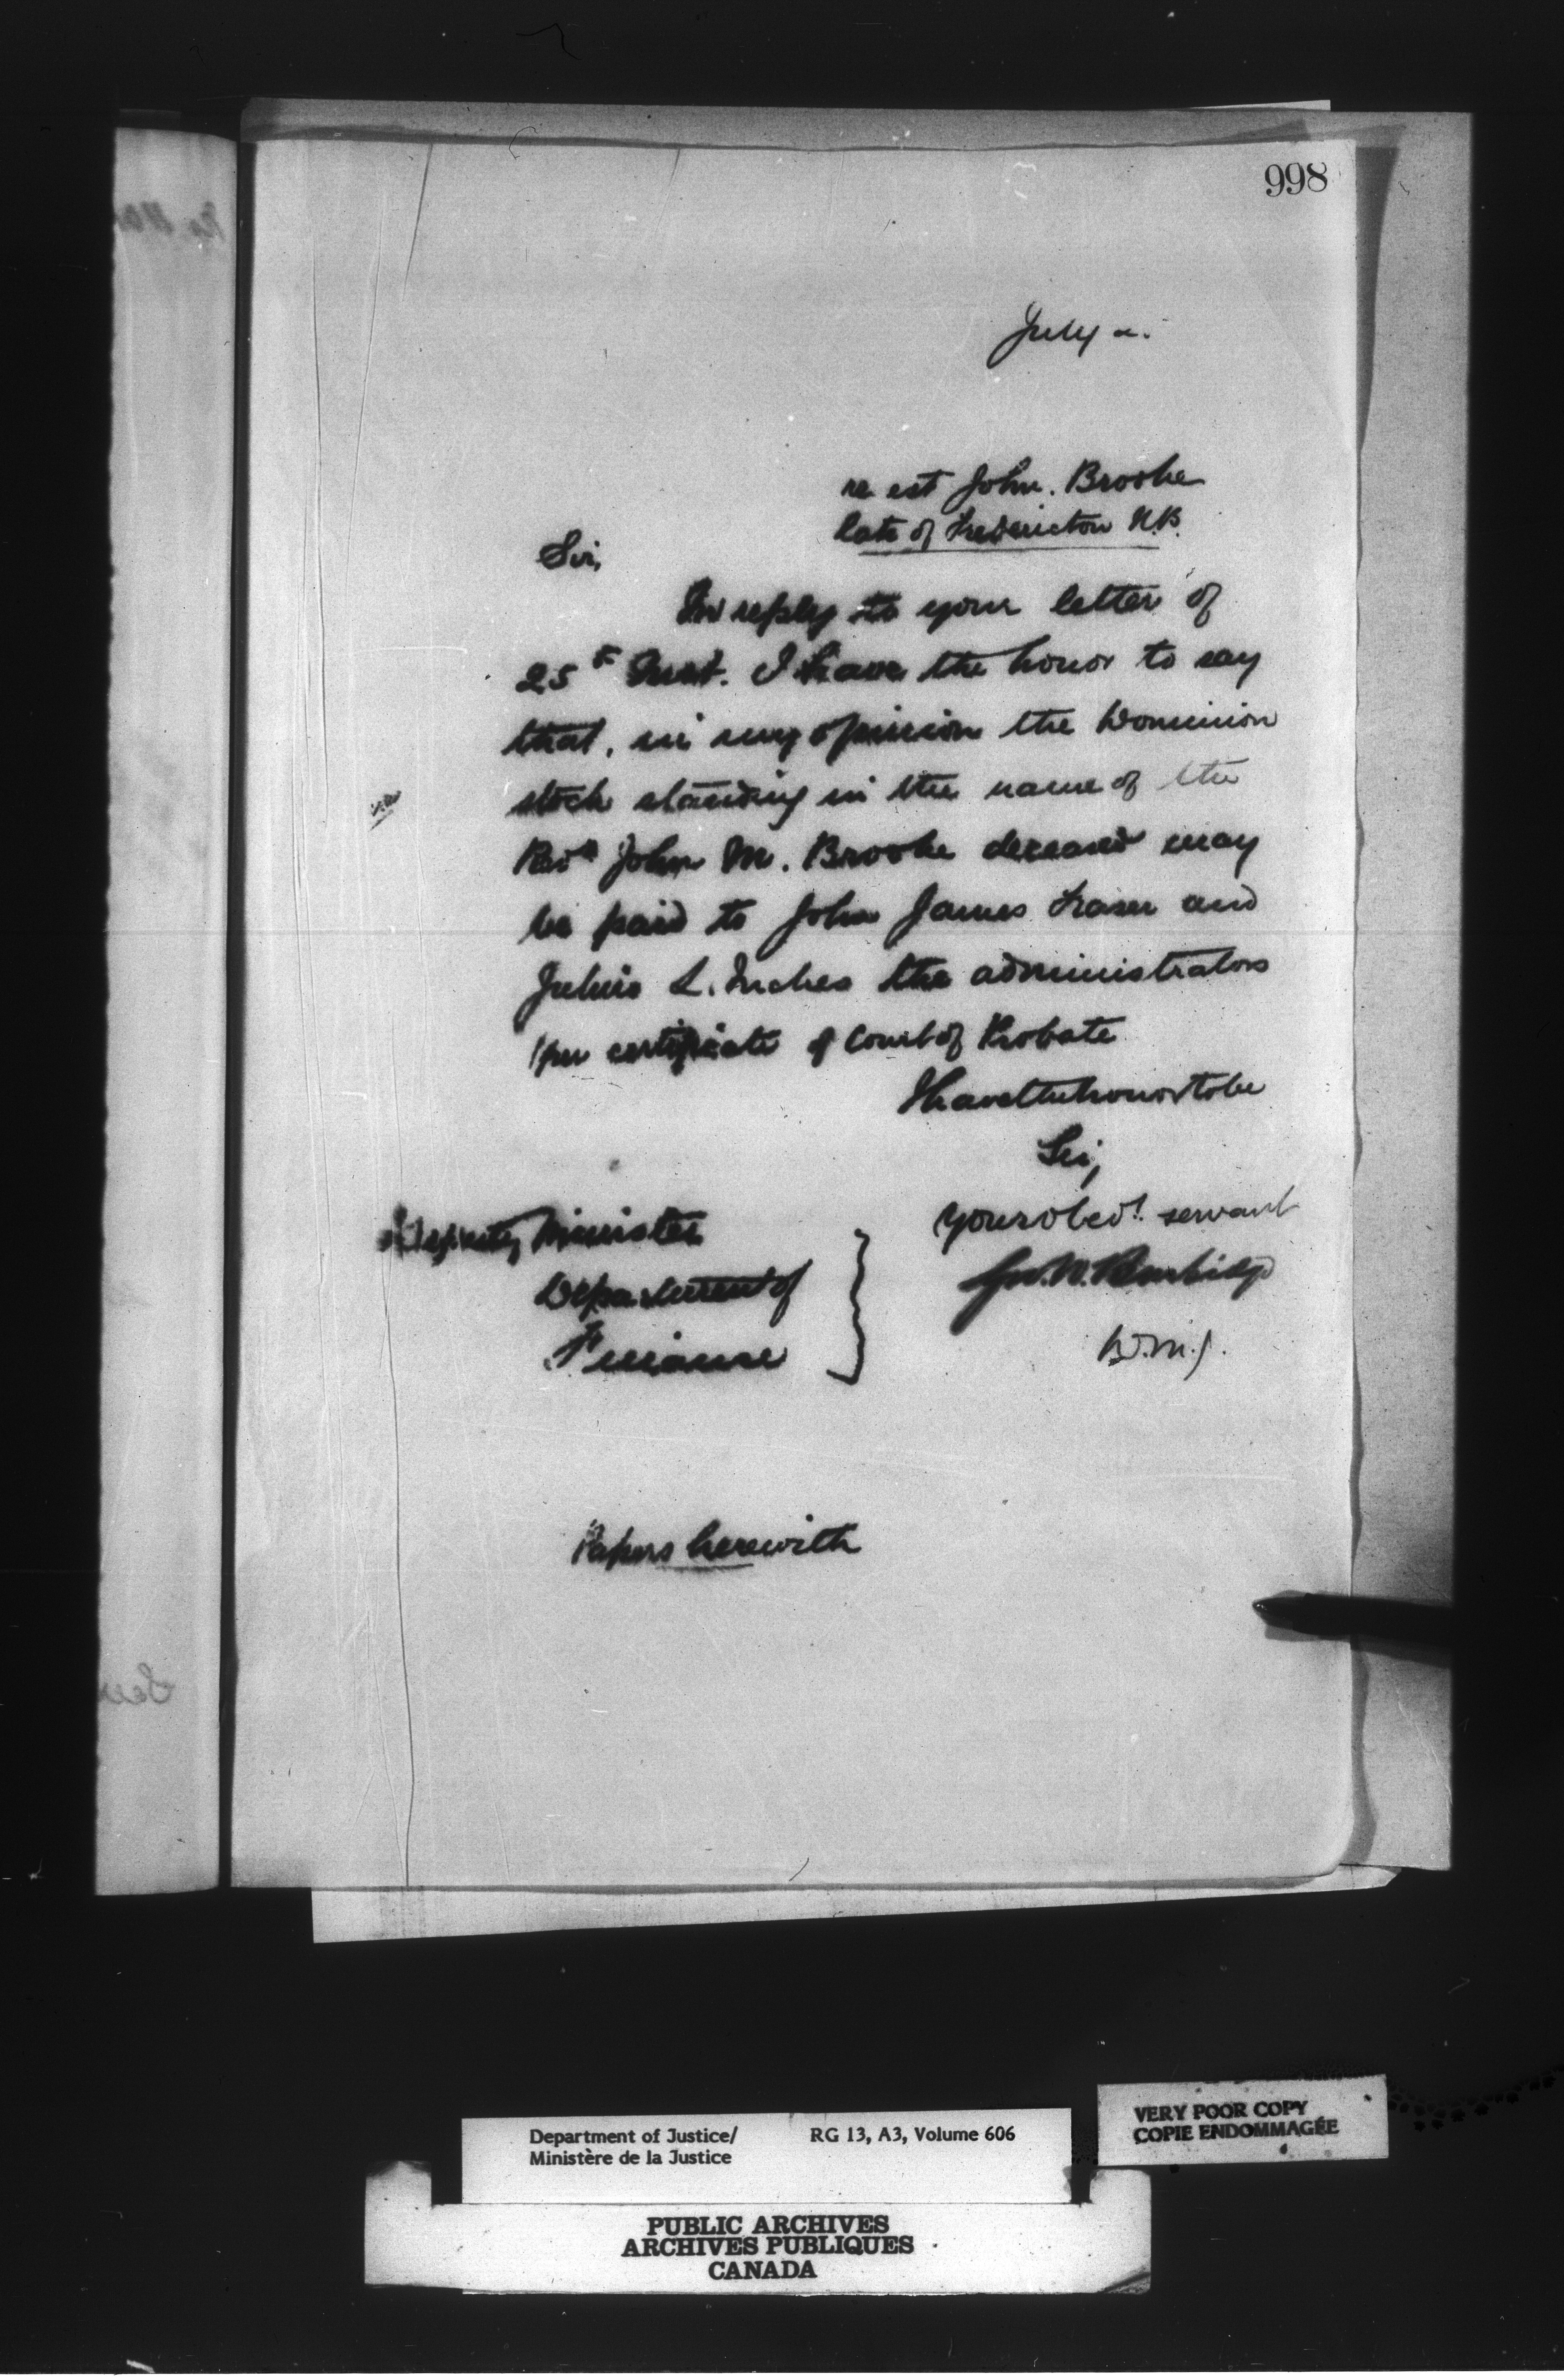 998
July 2.
re est John. Brooke
late of Fredericton N.B.
Sir,
In reply to your letter of
25th Inst. I have the honor to say
that, in my opinion the Dominion
stock standing in the name of the
Revd John M. Brooke deceased may
be paid to John James Fraser and
Julius L. Inches the administrators
per certificate of Court of Probate
I have the honor to be
Sir,
your obedt. servant
Geo. W. Burbidge
D.M.J.
Deputy Minister
Department of
Finance
Papers herewith
Department of Justice/
Ministère de la Justice
RG 13, A3, Volume 606
VERY POOR COPY
COPIE ENDOMMAGÉE
PUBLIC ARCHIVES
ARCHIVES PUBLIQUES
CANADA